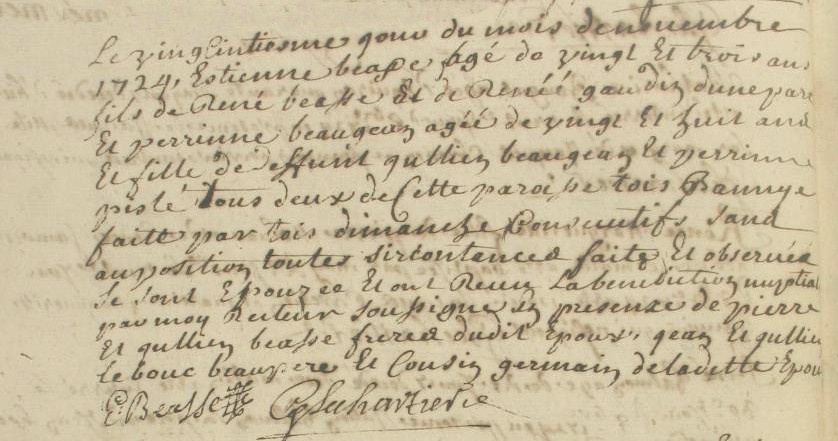 Le vingCintiesme jour du mois de nouembre
1724, Estienne beasse agé de vingt Et trois ans
fils de René beasse Et de Renéé gaudin dune part
Et perrinne beaugean agéé de vingt Et huit ans
Et fille de deffunt gullien beaugean Et perrinne
pislé tous deux de Cette paroisse tois Bannye
faitte par tois dimanche Consecutifs sans
auposition toutes sircontances faite Et observéé
se sont Epouzée Et ont Receu La benediction nuptial
par moy Recteur soussigné en presenze de pierre
Et gullien beasse freres dudit Epoux, jean Et gullien
Lebouc beaupere Et Cousin germain deladitte Epou
E: Beasse